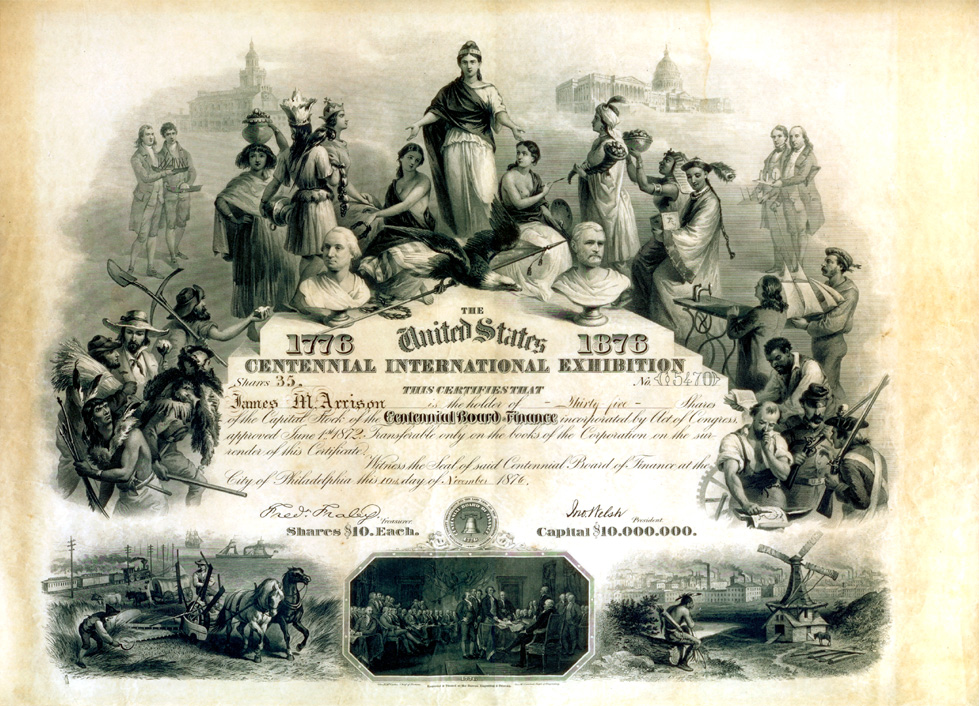 THE
United States
1776 1876
CENTENNIAL INTERNATIONAL EXHIBITION
Shares 35. No. 5470
THIS CERTIFIES THAT
James M. Arrison is the holder of - Thirty five - Shares
of the Capital Stock of the Centennial Board of Finance incorporated by Act of Congress,
approved June 1st 1872. Transferable only on the books of the Corporation on the sur-
render of this Certificate.
Witness the Seal of said Centennial Board of Finance at the
City of Philadelphia this day of November 1876.
Fredk Fraley Treasurer. Jno. Welsh President
Shares $10. Each. Capital $10.000.000.